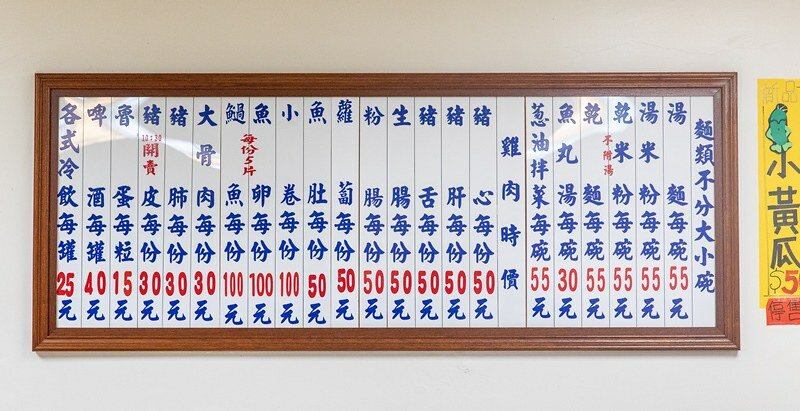 麵類不分大小碗
湯麵每碗55元
湯米粉每碗55元
乾米粉每碗55元
乾麵每碗55元
不附湯
魚丸湯每碗30元
葱油拌菜每碗55元
雞肉時價
豬心每份50元
豬肝每份50元
豬舌每份50元
生腸每份50元
粉腸每份50元
蘿蔔每份50元
魚肚每份50元
小卷每份100元
魚卵每份100元
每份5片
鍋魚每份100元
大骨肉每份30元
豬肺每份30元
豬皮每份30元
10:30開賣
魯蛋每粒15元
啤酒每罐40元
各式冷飲每罐25元
小黃瓜
$5
停售